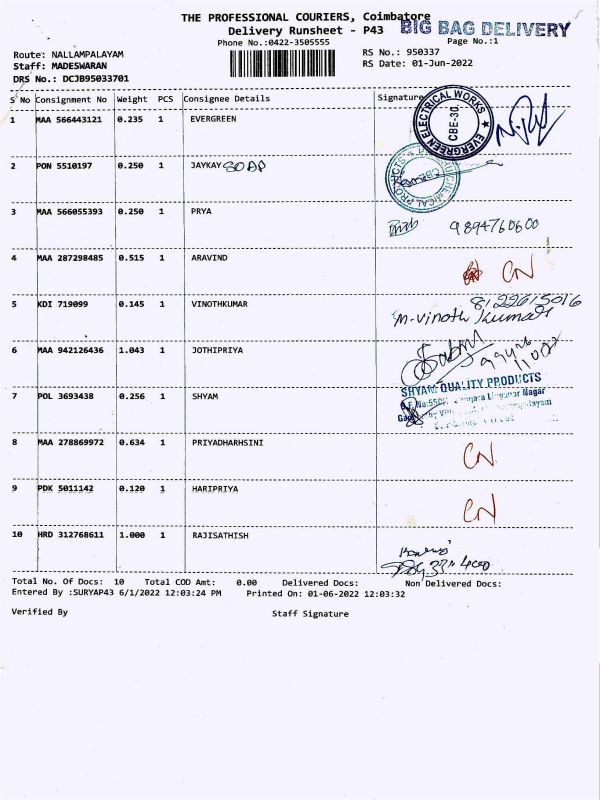 THE PROFESSIONAL COURIERS, Coimbatore
BIG BAG DELIVERY
Delivery Runsheet - P43
Phone No.:0422-3505555
Page No.:1
Route: NALLAMPALAYAM
RS No.: 950337
Staff: MADESWARAN
RS Date: 01-Jun-2022
DRS No.: DCJB95033701
S No Consignment No Weight PCS Consignee Details Signature
1 MAA 566443121 0.235 1 EVERGREEN
EVERGREEN ELECTRICAL WORKS ★ CBE-30.
2 PON 5510197 0.250 1 JAYKAY SOAP
3 MAA 566055393 0.250 1 PRYA 9894760600
4 MAA 287298485 0.515 1 ARAVIND CN
5 KDI 719099 0.145 1 VINOTHKUMAR
M-Vinoth Kumar
6 MAA 942126436 1.043 1 JOTHIPRIYA
7 POL 3693438 0.256 1 SHYAM
SHYAM QUALITY PRODUCTS
8 MAA 278869972 0.634 1 PRIYADHARHSINI CN
9 PDK 5011142 0.120 1 HARIPRIYA CN
10 HRD 312768611 1.000 1 RAJISATHISH
Total No. Of Docs: 10 Total COD Amt: 0.00 Delivered Docs: Non Delivered Docs:
Entered By :SURYAP43 6/1/2022 12:03:24 PM Printed On: 01-06-2022 12:03:32
Verified By Staff Signature